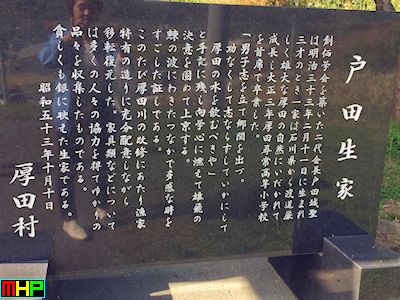 戸田生家
創価学会を築いた二代会長戸田城聖
は明治三十三年二月十一日に生まれ
三才のとき一家は石川県から渡道厳
しく雄大な厚田の自然にいだかれて
成長し大正三年厚田尋常高等小学校
を首席で卒業した。
「男子志を立て郷関を出づ。
功なくして志ならずしていかにして
厚田の水を飲むべきや」
と手記に残し向学心に燃えて雄飛の
決意を固めて上京する。
鰊の波にわきたつなかで多感な時を
すごした証しである。
このたび厚田川の改修にあたり漁家
特有の造りに充分配意しながら
移転復元した。家具類などについて
は多くの人々の協力を得てゆかりの
品々を収集したものである。
貧しくも銀に映えた生家である。
昭和五十三年十月十日
厚田村
MHP